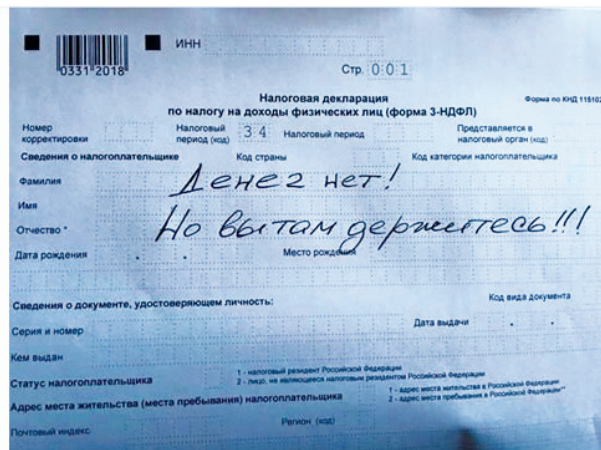 0331 2018
ИНН
Стр. 001
Налоговая декларация
по налогу на доходы физических лиц (форма 3-НДФЛ)
Форма по КНД 115102
Номер корректировки
Налоговый период (код) 34
Налоговый период
Представляется в налоговый орган (код)
Сведения о налогоплательщике
Код страны
Код категории налогоплательщика
Фамилия
Денег нет!
Имя
Отчество *
Но вы там держитесь!!!
Дата рождения
Место рождения
Сведения о документе, удостоверяющем личность:
Код вида документа
Серия и номер
Дата выдачи
Кем выдан
Статус налогоплательщика
1 - налоговый резидент Российской Федерации
2 - лицо, не являющееся налоговым резидентом Российской Федерации
Адрес места жительства (места пребывания) налогоплательщика
1 - адрес места жительства в Российской Федерации
2 - адрес места пребывания в Российской Федерации**
Почтовый индекс
Регион (код)